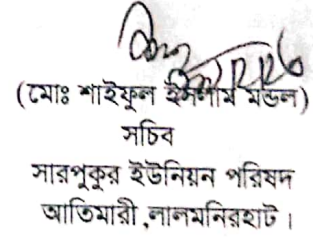 (মোঃ শাইফুল ইসলাম মন্ডল)
সচিব
সারপুকুর ইউনিয়ন পরিষদ
আতিমারী ,লালমনিরহাট ।